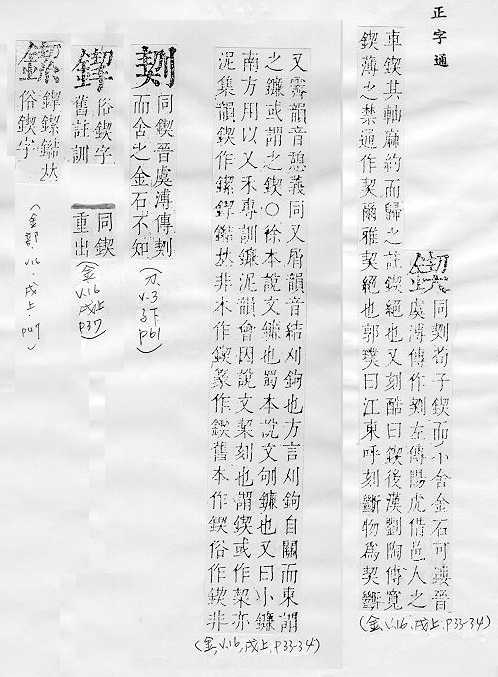 正字通
同剘荀子鍥而不舍金石可鏤晉
虞溥傳作剘左傳陽虎借邑人之
車鍥其軸麻約而歸之註鍥絕也又刻酷曰鍥後漢劉陶傳寬
鍥薄之禁通作契爾雅契絕也郭璞曰江東呼刻斷物為契斷
(金,v.16,戌上,p33-34)
又霽韻音憩義同又屑韻音結刈鉤也方言刈鉤自關而東謂
之鐮或謂之鍥○徐本說文鐮也蜀本說文刎鐮也又曰小鐮
南方用以乂禾專訓鐮泥韻會因說文栔刻也謂鍥或作栔亦
泥集韻鍥作 非本作鍥篆作鍥舊本作鍥俗作鍥非
(金,v.16,戌上,p33-34)
同鍥晉虞溥傳
而舍之金石不知
(刀 v.3 子下 p61)
俗鍥字
舊註訓
同鍥
重出
(金 v.16 戌上 p37)
俗鍥字
(金部 v.16, 戌上 p47)